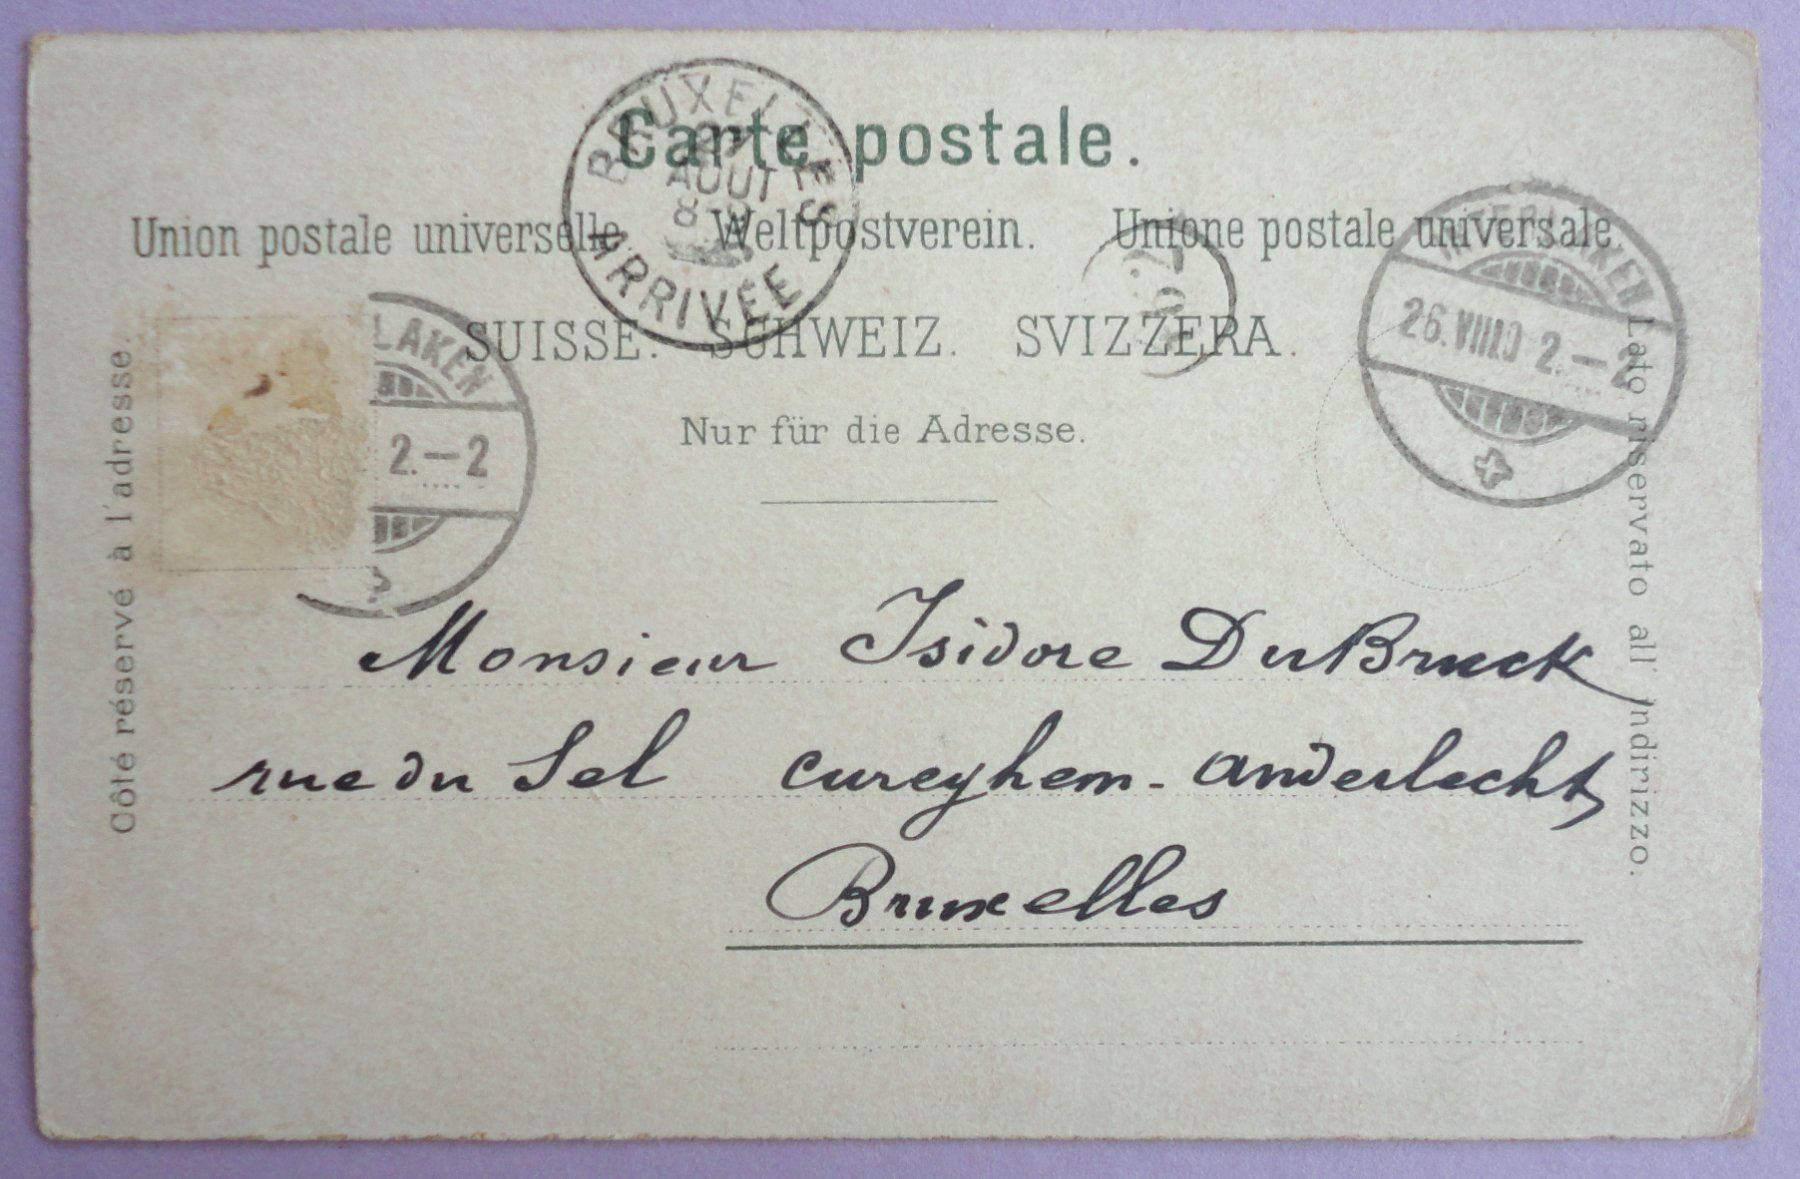 Carte postale.
Union postale universelle. Weltpostverein. Unione postale universale.
SUISSE. SCHWEIZ. SVIZZERA.
Nur für die Adresse.
Côté réservé à l'adresse.
Lato riservato all' indirizzo.
BRUXELLES
AOUT
ARRIVÉE
LAKEN
2.—2
INTERLAKEN
26.VIII.10 2.—2
Monsieur Isidore DuBruck
rue du Sel cureghem - anderlecht
Bruxelles